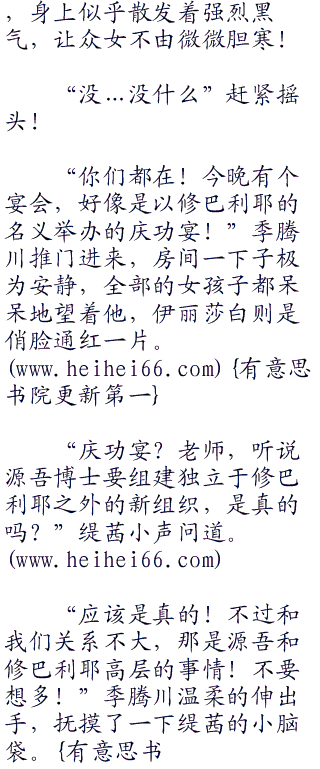 ，身上似乎散发着强烈黑
气，让众女不由微微胆寒！
“没…没什么”赶紧摇
头！
“你们都在！今晚有个
宴会，好像是以修巴利耶的
名义举办的庆功宴！”季腾
川推门进来，房间一下子极
为安静，全部的女孩子都呆
呆地望着他，伊丽莎白则是
俏脸通红一片。
(www.heihei66.com){有意思
书院更新第一}
“庆功宴？老师，听说
源吾博士要组建独立于修巴
利耶之外的新组织，是真的
吗？”缇茜小声问道。
(www.heihei66.com)
“应该是真的！不过和
我们关系不大，那是源吾和
修巴利耶高层的事情！不要
想多！”季腾川温柔的伸出
手，抚摸了一下缇茜的小脑
袋。{有意思书